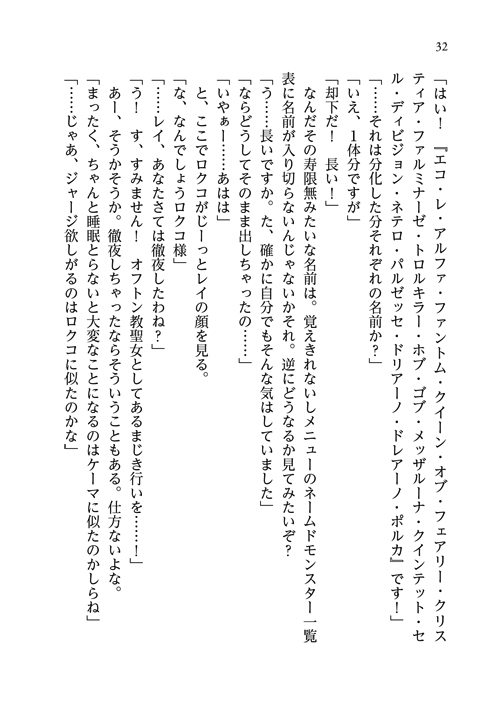 32
「はい！　『エコ・レ・アルファ・ファントム・クイーン・オブ・フェアリー・クリス
ティア・ファルミナーゼ・トロルキラー・ホブ・ゴブ・メッザルーナ・クインテット・セ
ル・ディビジョン・ネテロ・パルゼッセ・ドリアーノ・ドレアーノ・ポルカ』です！」
「……それは分化した分それぞれの名前か？」
「いえ、１体分ですが」
「却下だ！　長い！」
　なんだその寿限無みたいな名前は。覚えきれないしメニューのネームドモンスター一覧
表に名前が入り切らないんじゃないかそれ。逆にどうなるか見てみたいぞ？
「う……長いですか。た、確かに自分でもそんな気はしていました」
「ならどうしてそのまま出しちゃったの……」
「いやぁー……あはは」
　と、ここでロクコがじーっとレイの顔を見る。
「な、なんでしょうロクコ様」
「……レイ、あなたさては徹夜したわね？」
「う！　す、すみません！　オフトン教聖女としてあるまじき行いを……！」
　あー、そうかそうか。徹夜しちゃったならそういうこともある。仕方ないよな。
「まったく、ちゃんと睡眠とらないと大変なことになるのはケーマに似たのかしらね」
「……じゃあ、ジャージ欲しがるのはロクコに似たのかな」